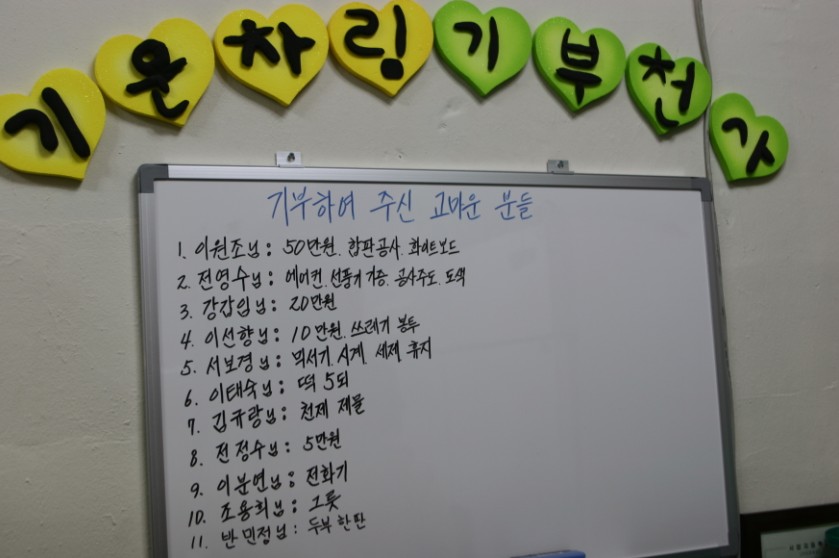 기운차림기부천사
기부하여 주신 고마운 분들
1. 이원조님: 50만원. 합판공사. 화이트보드
2. 전영수님: 에어컨. 선풍기 기증. 공사주도. 도색
3. 강갑임님: 20만원
4. 이선향님: 10만원. 쓰레기 봉투
5. 서보경님: 믹서기. 시계. 세제. 휴지
6. 이태숙님: 떡 5되
7. 김규랑님: 천제 제물
8. 전정수님: 5만원
9. 이분연님: 전화기
10. 조용희님: 그릇
11. 반민정님: 두부 한판